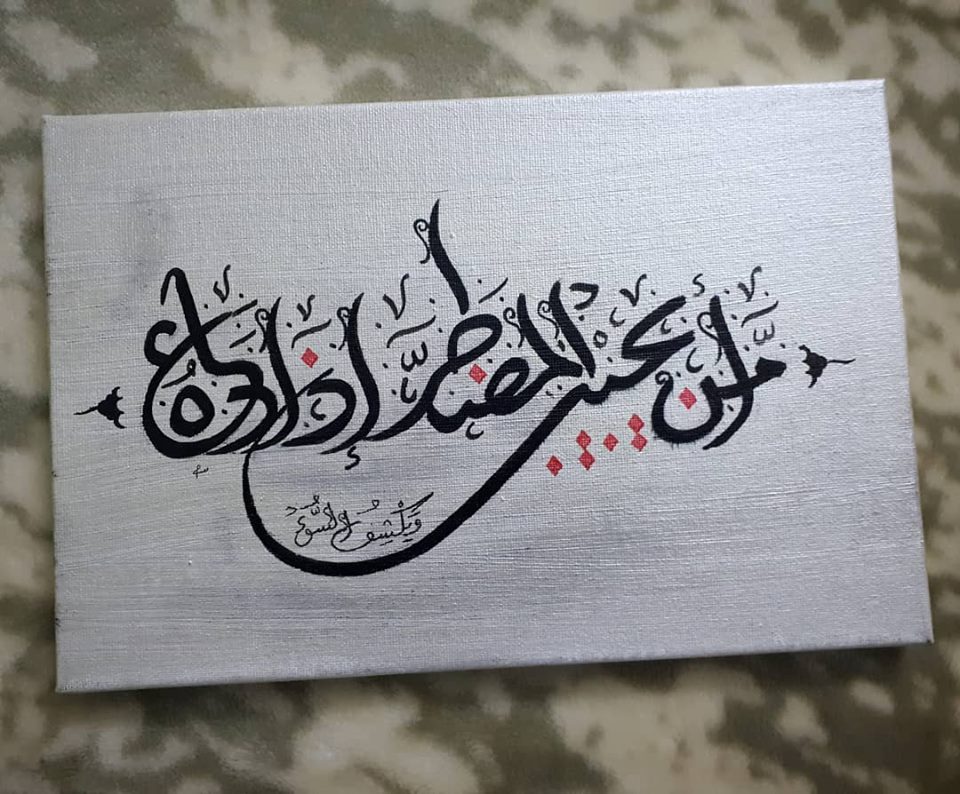 أمَّن يجيب المضطرَّ إذا دعاه
وَيَكْشِفُ السُّوءَ